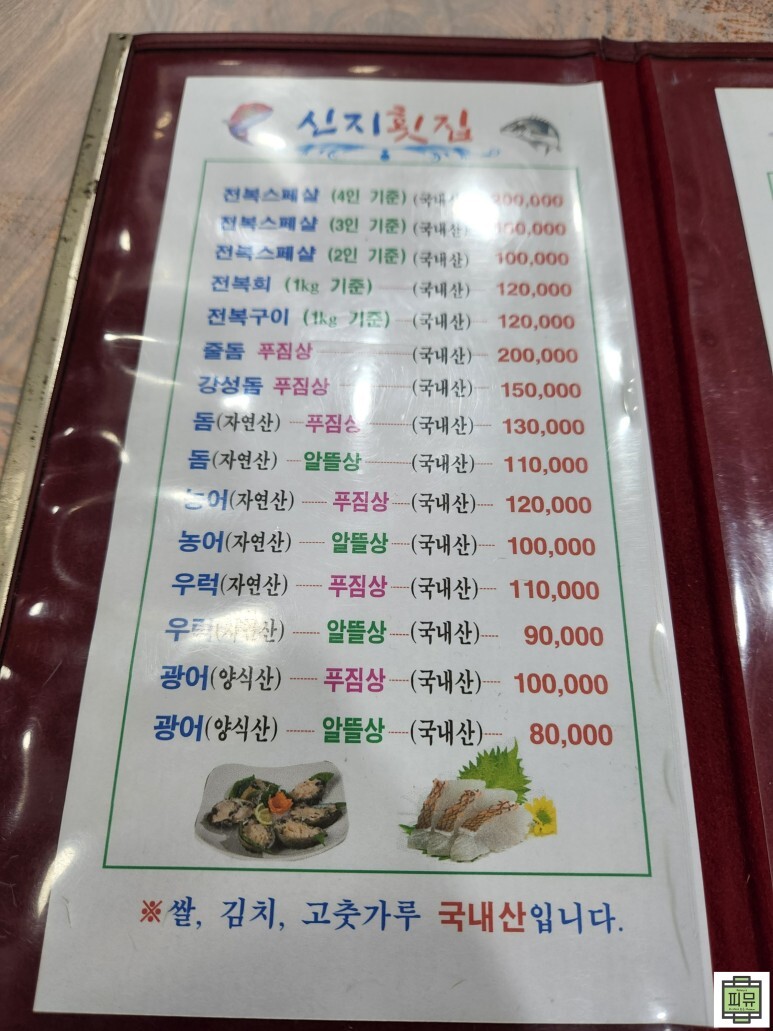 신지횟집
전복스페샬 (4인 기준) (국내산) 200,000
전복스페샬 (3인 기준) (국내산) 150,000
전복스페샬 (2인 기준) (국내산) 100,000
전복회 (1kg 기준) (국내산) 120,000
전복구이 (1kg 기준) (국내산) 120,000
줄돔 푸짐상 (국내산) 200,000
강성돔 푸짐상 (국내산) 150,000
돔(자연산) 푸짐상 (국내산) 130,000
돔(자연산) 알뜰상 (국내산) 110,000
농어(자연산) 푸짐상 (국내산) 120,000
농어(자연산) 알뜰상 (국내산) 100,000
우럭(자연산) 푸짐상 (국내산) 110,000
우럭(자연산) 알뜰상 (국내산) 90,000
광어(양식산) 푸짐상 (국내산) 100,000
광어(양식산) 알뜰상 (국내산) 80,000
※쌀, 김치, 고춧가루 국내산입니다.
피뮤